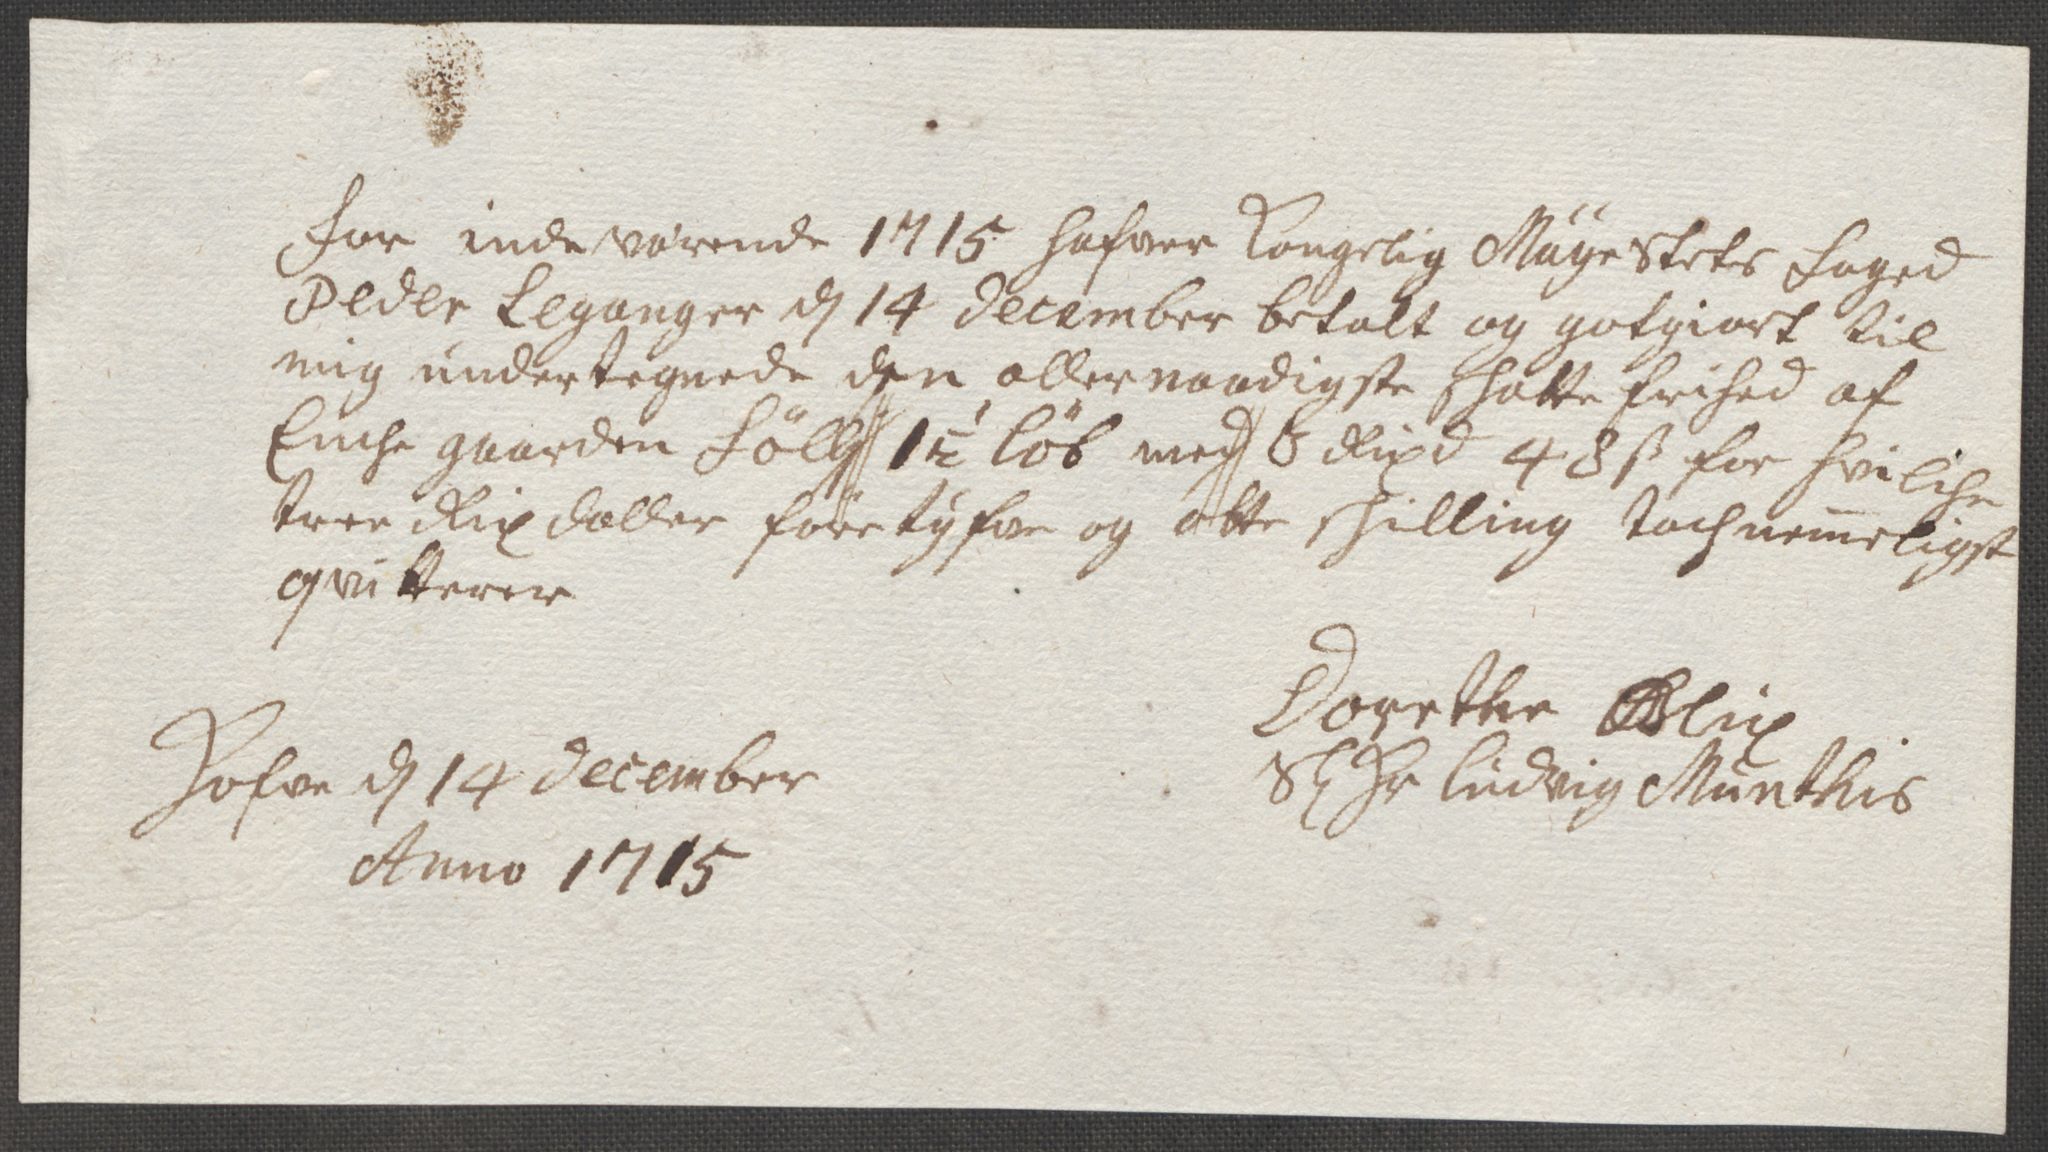 For inde værende 1715 hafver Kongelig Mäyestets Faged
Peder Leganger d 14 December betalt og gotgiort til
mig undertegnede den allernaadigste skatte frihed af
Enche gaarden 1½ löb med Rixd 48 ß for hvilche
tree Rixdaller företyfve og otte skilling tachnemmeligst
qvitterer
Dorethe Blix
Sl Hr Ludvig Munthis
Hofve d 14 December
Anno 1715